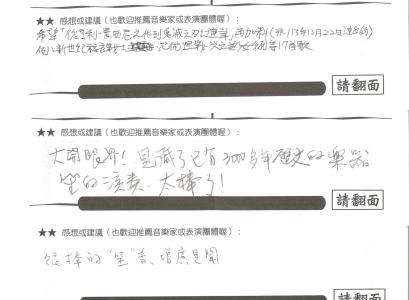 ★★ 感想或建議(也歡迎推薦音樂家或表演團體喔):
希望「從亨利·曼西尼之作到鬼滅之刃
再加料(非113年12月22日演出的)
但
新世紀福音戰士
等17首歌
請翻面
★★ 感想或建議(也歡迎推薦音樂家或表演團體喔):
大開眼界!見識了已有3000多年歷史的樂器
笙的演奏,太棒了!
請翻面
★★ 感想或建議(也歡迎推薦音樂家或表演團體喔):
很棒的"笙"音、增廣見聞
請翻面